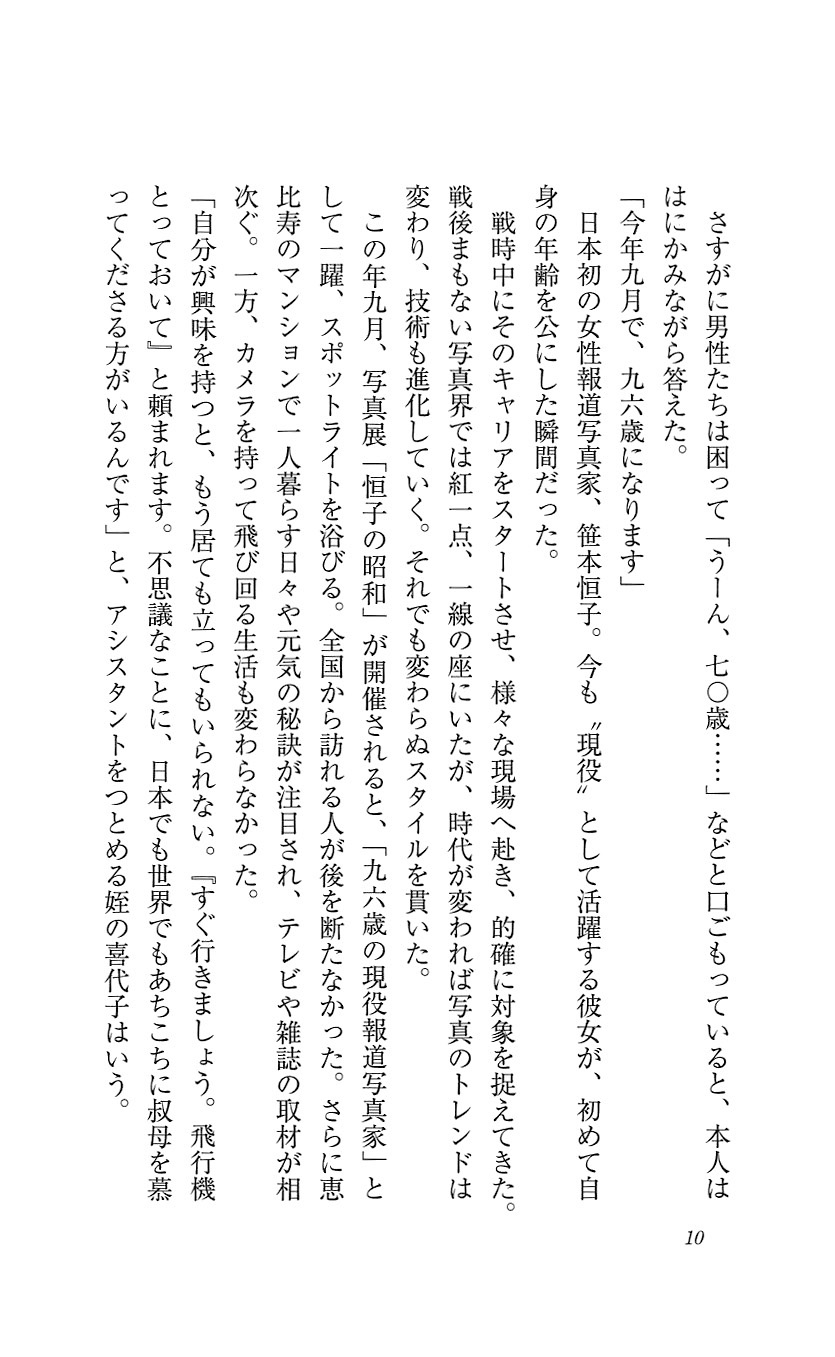 さすがに男性たちは困って「うーん、七〇歳……」などと口ごもっていると、本人は
はにかみながら答えた。
「今年九月で、九六歳になります」
　日本初の女性報道写真家、笹本恒子。今も〝現役〟として活躍する彼女が、初めて自
身の年齢を公にした瞬間だった。
　戦時中にそのキャリアをスタートさせ、様々な現場へ赴き、的確に対象を捉えてきた。
戦後まもない写真界では紅一点、一線の座にいたが、時代が変われば写真のトレンドは
変わり、技術も進化していく。それでも変わらぬスタイルを貫いた。
　この年九月、写真展「恒子の昭和」が開催されると、「九六歳の現役報道写真家」と
して一躍、スポットライトを浴びる。全国から訪れる人が後を断たなかった。さらに恵
比寿のマンションで一人暮らす日々や元気の秘訣が注目され、テレビや雑誌の取材が相
次ぐ。一方、カメラを持って飛び回る生活も変わらなかった。
「自分が興味を持つと、もう居ても立ってもいられない。『すぐ行きましょう。飛行機
とっておいて』と頼まれます。不思議なことに、日本でも世界でもあちこちに叔母を慕
ってくださる方がいるんです」と、アシスタントをつとめる姪の喜代子はいう。
10